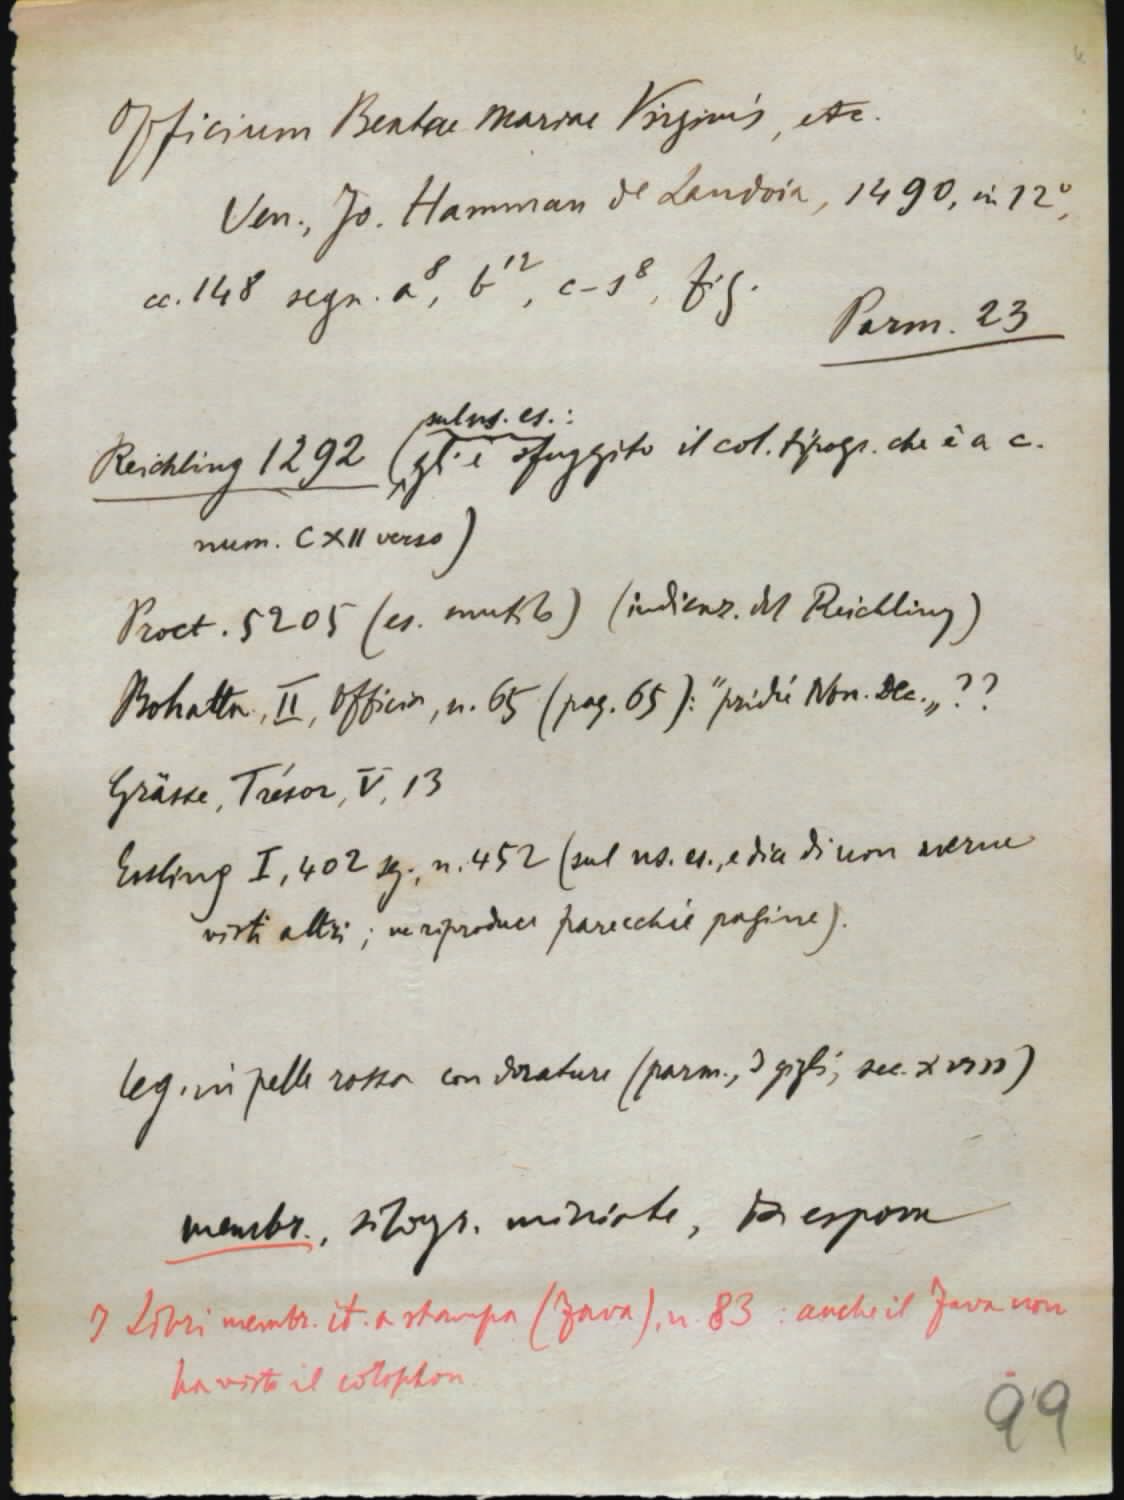 Officium Beatae Mariae Virginis, etc.
Ven., Jo. Hamman de Landoia, 1490, in 12°,
cc. 148 segn. a⁸, b¹², c-s⁸, fig.
Parm. 23
sul ns. es.:
Reichling 1292 (gli è sfuggito il col. tipogr. che è a c.
num. CXII verso)
Proct. 5205 (es. mutilo) (indicaz. del Reichling)
Bohatta, II, Officia, n. 65 (pag. 65): "pridie Non. Dec.„ ??
Grässe, Trésor, V, 13
Essling I, 402 sg., n. 452 (sul ns. es., e dice di non averne
visti altri; ne riproduce parecchie pagine).
Leg. in pelle rossa con dorature (parm., 3 gigli; sec. XVIII)
membr., silogr. miniate, Da esporre
Libri membr. it. a stampa (Zava), n. 83 : anche il Zava non
ha visto il colophon
99